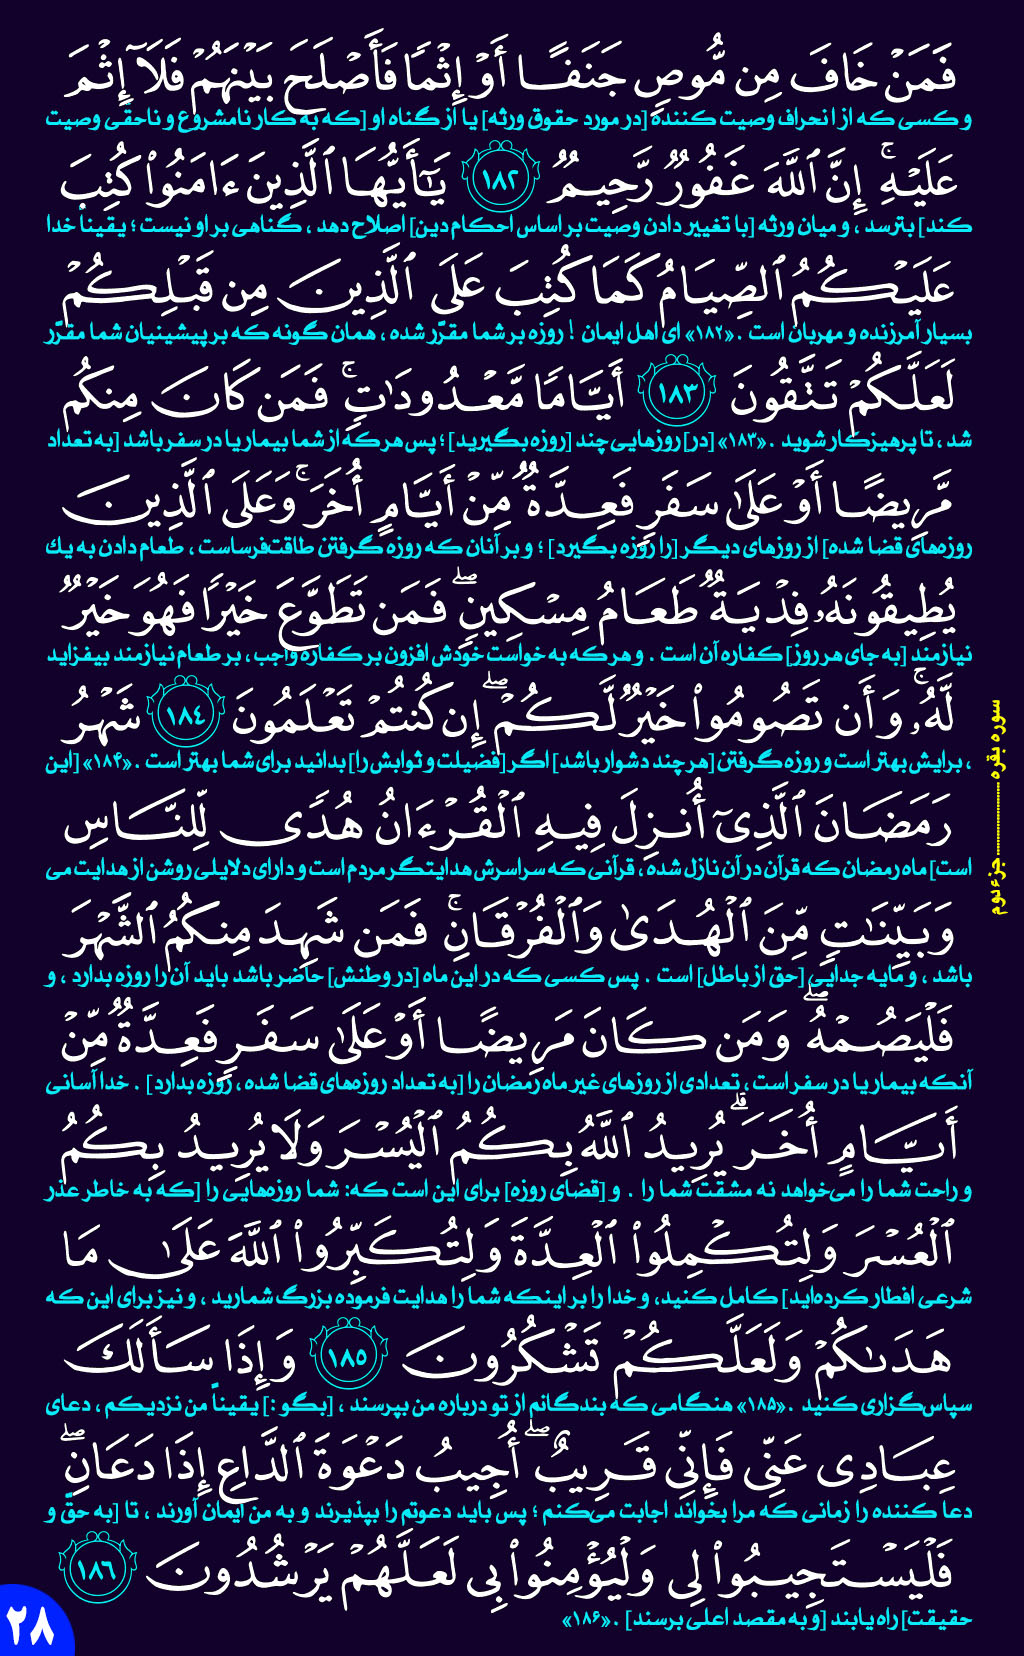 فَمَنْ خَافَ مِن مُّوصٍ جَنَفًا أَوْ إِثْمًا فَأَصْلَحَ بَيْنَهُمْ فَلَآ إِثْمَ
و کسی که از انحراف وصیت کننده [در مورد حقوق ورثه] یا از گناه او [که به کار نامشروع و ناحقّی وصیت
عَلَيْهِ ۚ إِنَّ ٱللَّهَ غَفُورٌ رَّحِيمٌ ١٨٢ يَـٰٓأَيُّهَا ٱلَّذِينَ ءَامَنُوا۟ كُتِبَ
کند] بترسد ، و میان ورثه [با تغییر دادن وصیت بر اساس احکام دین] اصلاح دهد ، گناهی بر او نیست ؛ یقیناً خدا
عَلَيْكُمُ ٱلصِّيَامُ كَمَا كُتِبَ عَلَى ٱلَّذِينَ مِن قَبْلِكُمْ
بسیار آمرزنده و مهربان است .«۱۸۲» ای اهل ایمان ! روزه بر شما مقرّر شده ، همان گونه که بر پیشینیان شما مقرّر
لَعَلَّكُمْ تَتَّقُونَ ١٨٣ أَيَّامًا مَّعْدُودَٰتٍ ۚ فَمَن كَانَ مِنكُم
شد ، تا پرهیزکار شوید .«۱۸۳» [در] روزهایی چند [روزه بگیرید] ؛ پس هر که از شما بیمار یا در سفر باشد [به تعداد
مَّرِيضًا أَوْ عَلَىٰ سَفَرٍ فَعِدَّةٌ مِّنْ أَيَّامٍ أُخَرَ ۚ وَعَلَى ٱلَّذِينَ
روزه‌های قضا شده] از روزهای دیگر [را روزه بگیرد] ؛ و بر آنان که روزه گرفتن طاقت‌فرساست ، طعام دادن به یك
يُطِيقُونَهُۥ فِدْيَةٌ طَعَامُ مِسْكِينٍ ۖ فَمَن تَطَوَّعَ خَيْرًا فَهُوَ خَيْرٌ
نیازمند [به جای هر روز] کفاره آن است . و هر که به خواست خودش افزون بر کفاره واجب ، بر طعام نیازمند بیفزاید
لَّهُۥ ۚ وَأَن تَصُومُوا۟ خَيْرٌ لَّكُمْ ۖ إِن كُنتُمْ تَعْلَمُونَ ١٨٤ شَهْرُ
، برایش بهتر است و روزه گرفتن [هر چند دشوار باشد] اگر [فضیلت و ثوابش را] بدانید برای شما بهتر است .«۱۸۴» [این
رَمَضَانَ ٱلَّذِىٓ أُنزِلَ فِيهِ ٱلْقُرْءَانُ هُدًى لِّلنَّاسِ
است] ماه رمضان که قرآن در آن نازل شده ، قرآنی که سراسرش هدایتگر مردم است و دارای دلایلی روشن از هدایت می
وَبَيِّنَـٰتٍ مِّنَ ٱلْهُدَىٰ وَٱلْفُرْقَانِ ۚ فَمَن شَهِدَ مِنكُمُ ٱلشَّهْرَ
باشد ، و مایه جدایی [حق از باطل] است . پس کسی که در این ماه [در وطنش] حاضر باشد باید آن را روزه بدارد ، و
فَلْيَصُمْهُ ۖ وَمَن كَانَ مَرِيضًا أَوْ عَلَىٰ سَفَرٍ فَعِدَّةٌ مِّنْ
آنکه بیمار یا در سفر است ، تعدادی از روزهای غیر ماه رمضان را [به تعداد روزه‌های قضا شده ، روزه بدارد] . خدا آسانی
أَيَّامٍ أُخَرَ ۗ يُرِيدُ ٱللَّهُ بِكُمُ ٱلْيُسْرَ وَلَا يُرِيدُ بِكُمُ
و راحت شما را می‌خواهد نه مشقت شما را . و [قضای روزه] برای این است که: شما روزه‌هایی را [که به خاطر عذر
ٱلْعُسْرَ وَلِتُكْمِلُوا۟ ٱلْعِدَّةَ وَلِتُكَبِّرُوا۟ ٱللَّهَ عَلَىٰ مَا
شرعی افطار کرده‌اید] کامل کنید، و خدا را بر اینکه شما را هدایت فرموده بزرگ شمارید ، و نیز برای این که
هَدَىٰكُمْ وَلَعَلَّكُمْ تَشْكُرُونَ ١٨٥ وَإِذَا سَأَلَكَ
سپاس‌گزاری کنید .«۱۸۵» هنگامی که بندگانم از تو درباره من بپرسند ، [بگو :] یقیناً من نزدیکم ، دعای
عِبَادِى عَنِّى فَإِنِّى قَرِيبٌ ۖ أُجِيبُ دَعْوَةَ ٱلدَّاعِ إِذَا دَعَانِ ۖ
دعا کننده را زمانی که مرا بخواند اجابت می‌کنم ؛ پس باید دعوتم را بپذیرند و به من ایمان آورند ، تا [به حقّ و
فَلْيَسْتَجِيبُوا۟ لِى وَلْيُؤْمِنُوا۟ بِى لَعَلَّهُمْ يَرْشُدُونَ ١٨٦
حقیقت] راه یابند [و به مقصد اعلی برسند] .«۱۸۶»
سوره بقره .................... جزء دوم
۲۸